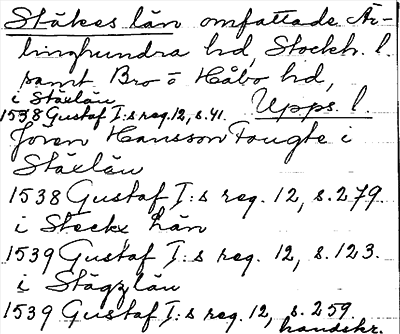 Stäkes län omfattade Är-
linghundra hd, Stockh. l.
samt Bro o Håbo hd,
i Stäxlän Upps. l.
1538 Gustaf I:s reg. 12, s. 41.
Jören Hansson Fougte i
Stäxlän
1538 Gustaf I:s reg. 12, s. 279
i Steckx län
1539 Gustaf I:s reg. 12, s. 123.
i Stägzlän
1539 Gustaf I:s reg. 12, s. 259.
handskr.